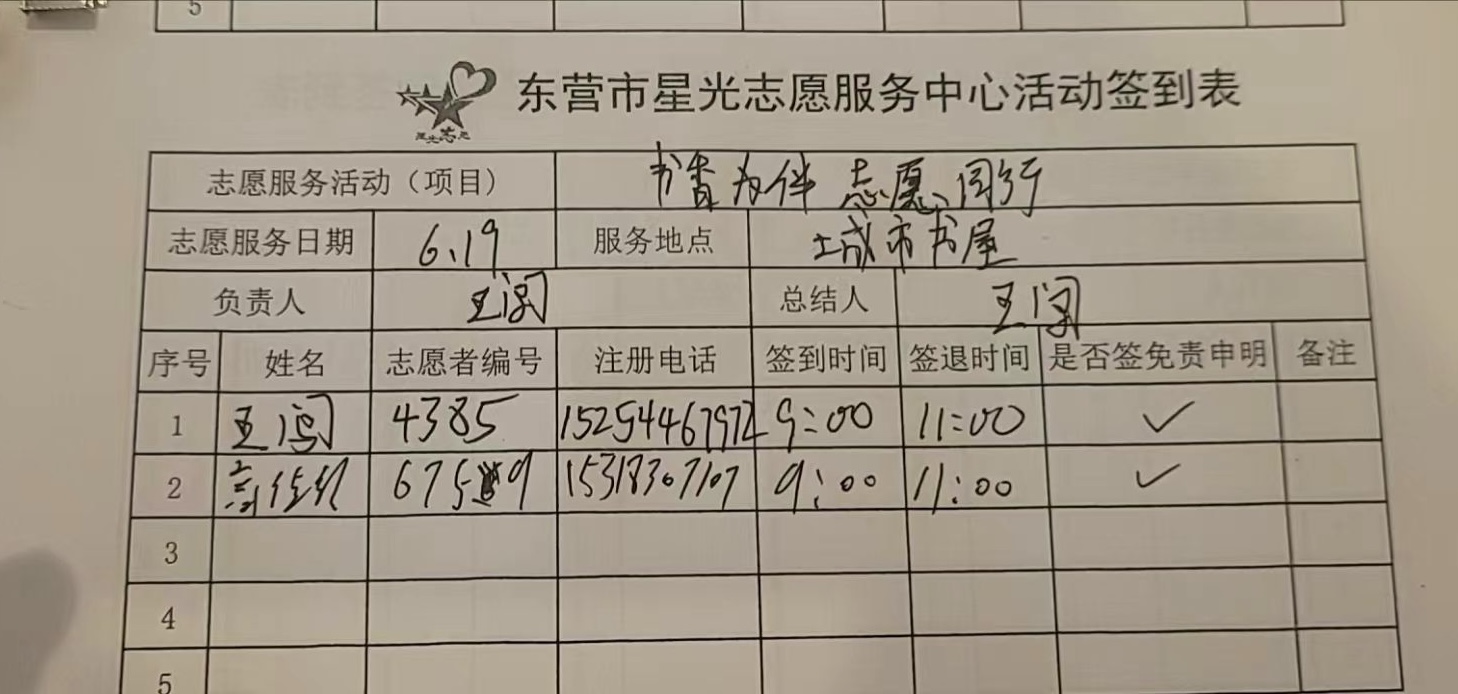 5
东营市星光志愿服务中心活动签到表
志愿服务活动（项目） 书香为伴 志愿同行
志愿服务日期 6.19 服务地点 土城市书屋
负责人 王闯 总结人 王闯
序号 姓名 志愿者编号 注册电话 签到时间 签退时间 是否签免责申明 备注
1 王闯 4385 15254467972 9:00 11:00 ✓
2 6759 15318307107 9:00 11:00 ✓
3
4
5